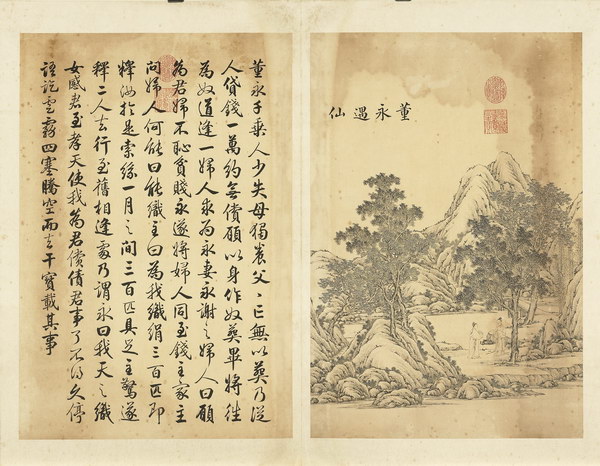 董永遇仙
董永千乘人少失母獨養父〻亡無以葬乃從
人貸錢一萬約無償願以身作奴葬畢將往
為奴道逢一婦人求為永妻永謝之婦人曰願
為君婦不恥貧賤永遂將婦人同至錢主家主
問婦人何能曰能織主曰為我織絹三百匹即
釋汝於是索絲一月之間三百匹具足主驚遂
釋二人去行至舊相逢處乃謂永曰我天之織
女感君至孝天使我為君償債君事了不得久停
語訖雲霧四塞騰空而去干寶載其事